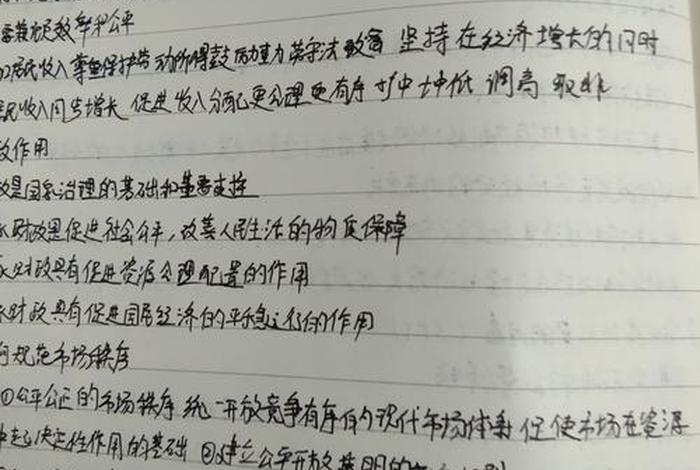 需兼顾效率和公平
居民收入 尊重保护劳动所得鼓励重力劳守法致富 坚持在经济增长的同时
民收入同步增长 促进收入分配更合理更有序 扩中增低 调高 取非
政作用
政是国家治理的基础和重要支柱
财政是促进社会公平,改善人民生活的物质保障
财政具有促进资源合理配置的作用
财政具有促进国民经济的平稳运行的作用
何规范市场秩序
①公平公正的市场秩序 统一开放竞争有序的现代市场体系 促使市场在资源
中起决定性作用的基础 ②建立公平开放